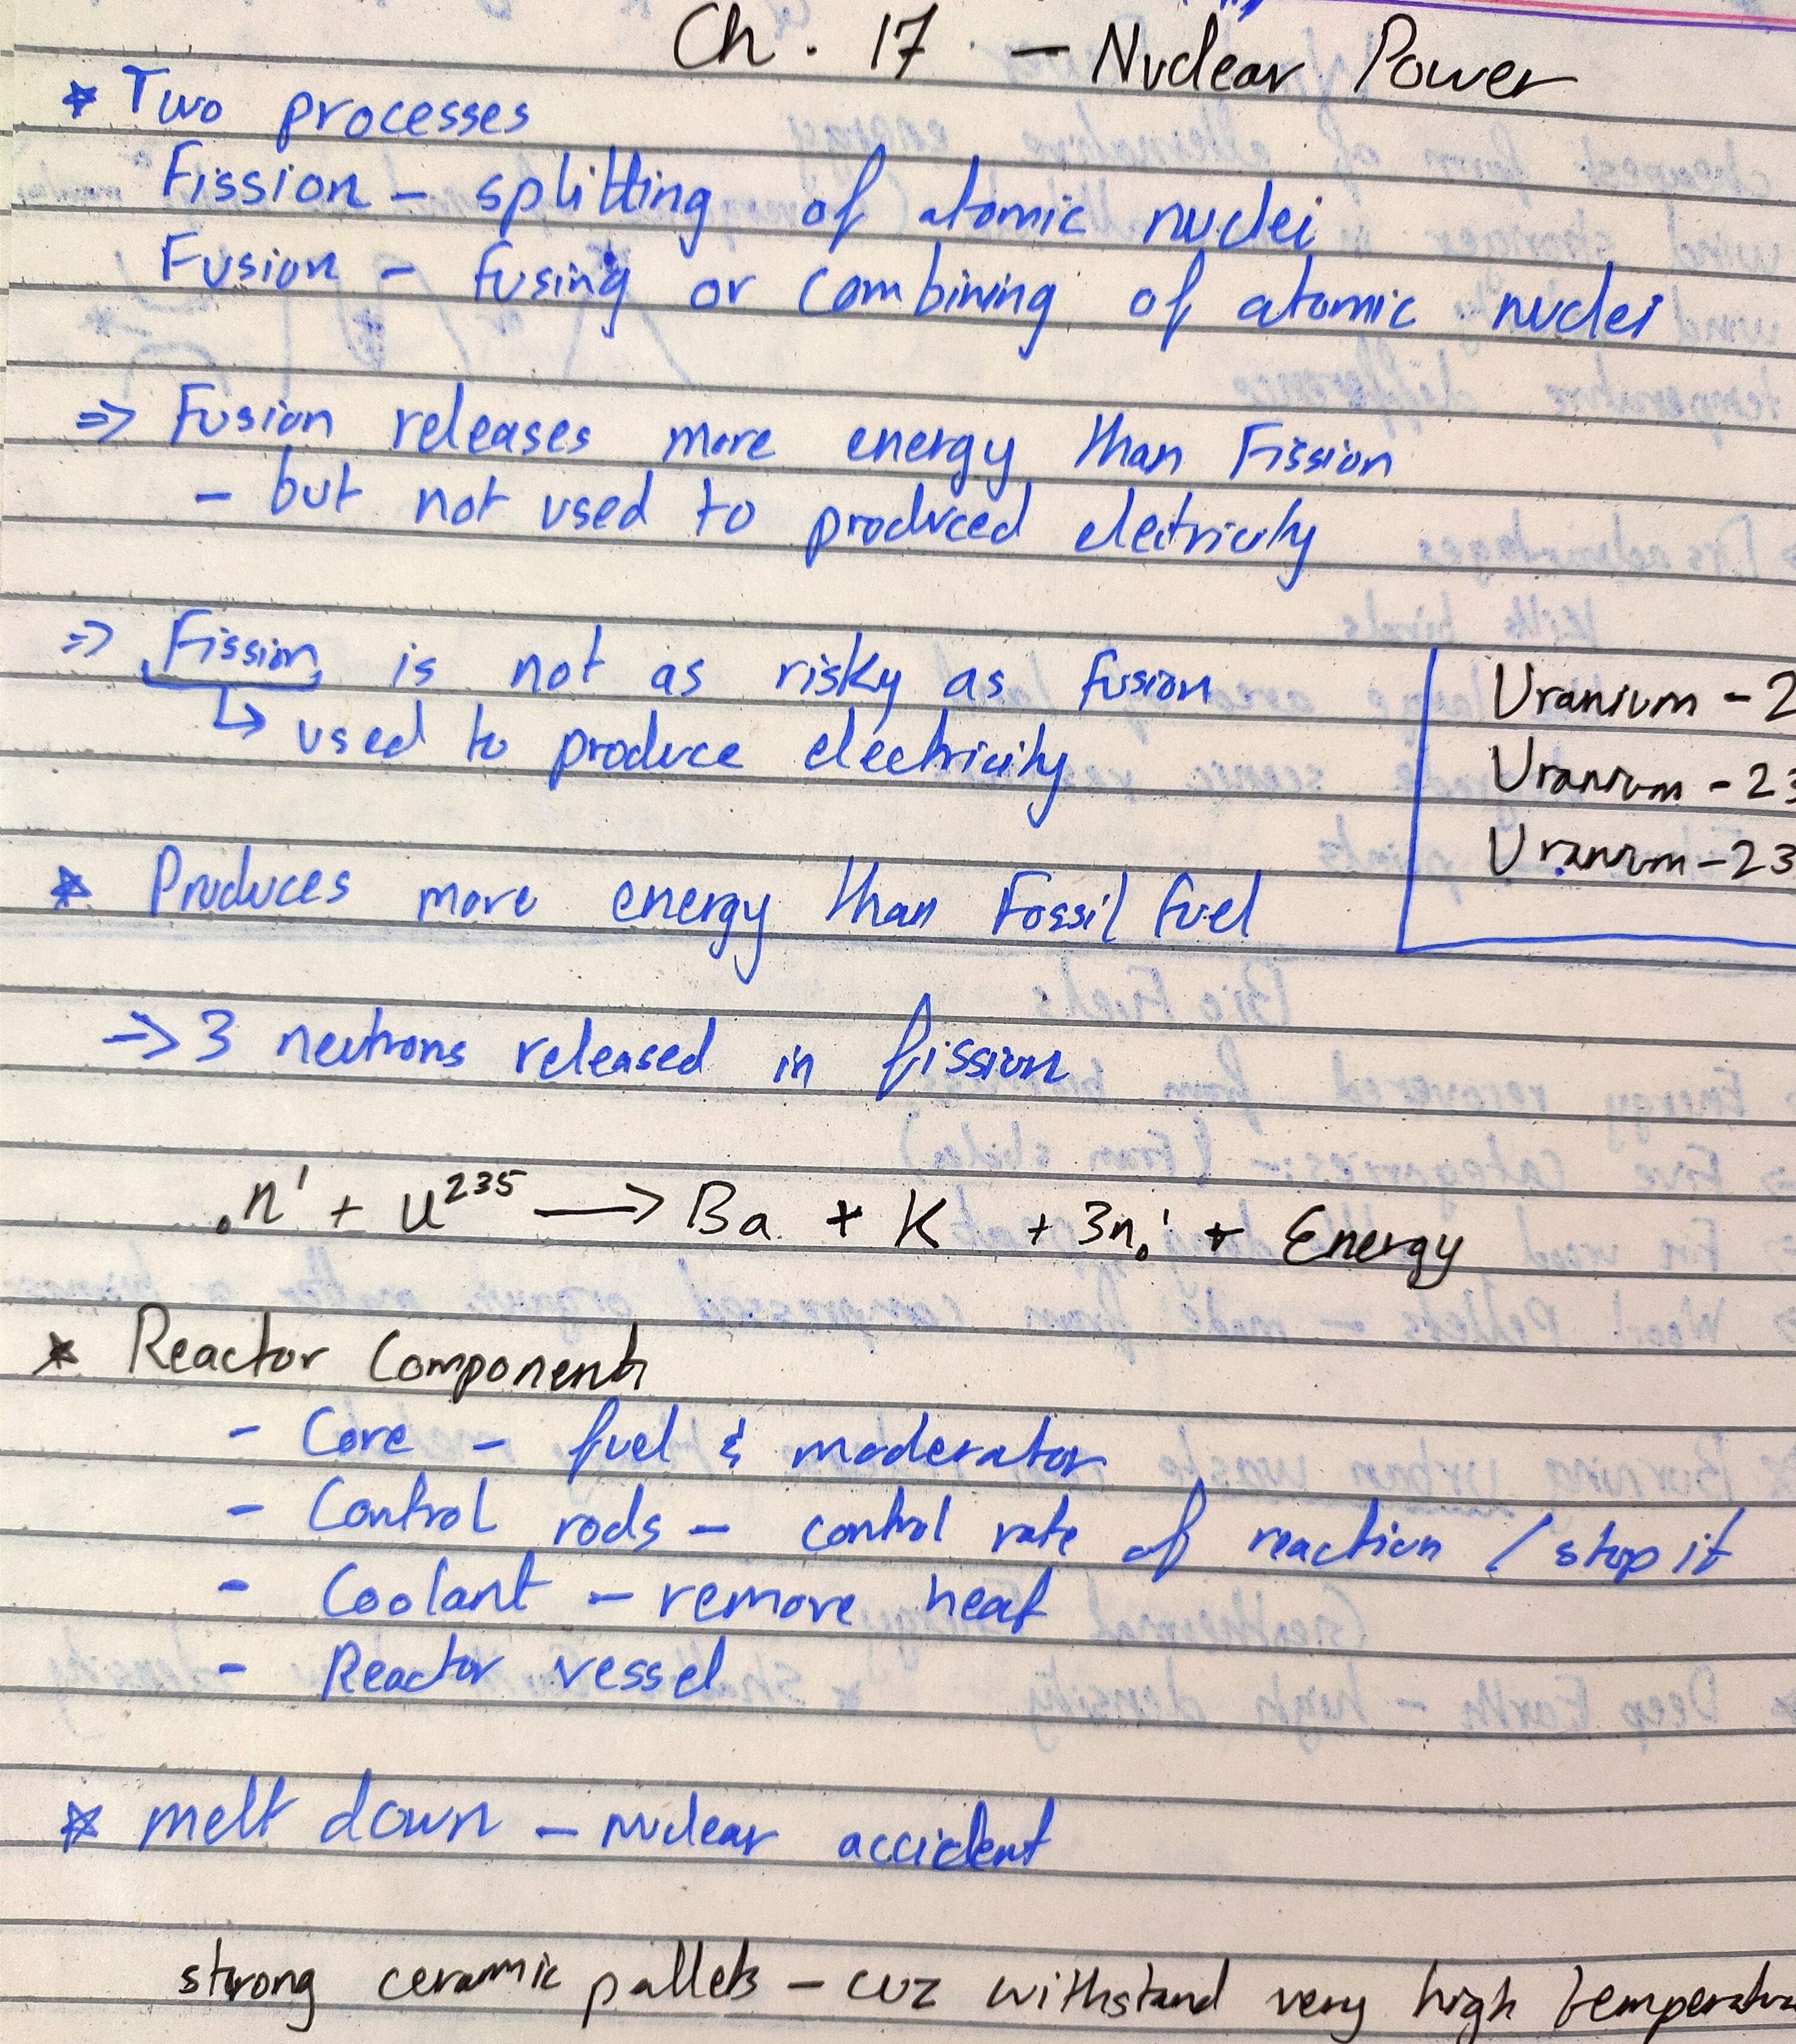 Ch. 17 - Nuclear Power
* Two processes
Fission - splitting of atomic nuclei
Fusion - fusing or combining of atomic nuclei
=> Fusion releases more energy than Fission
- but not used to produced electricity
=> Fission is not as risky as fusion
↳ used to produce electricity
Uranium - 2
Uranium - 23
Uranium - 23
* Produces more energy than Fossil fuel
-> 3 neutrons released in fission
₀n¹ + U²³⁵ ⟶ Ba + K + 3n₀¹ + Energy
* Reactor Components
- Core - fuel & moderator
- Control rods - control rate of reaction / stop it
- Coolant - remove heat
- Reactor vessel
* melt down - nuclear accident
strong ceramic pallets - cuz withstand very high temperatu